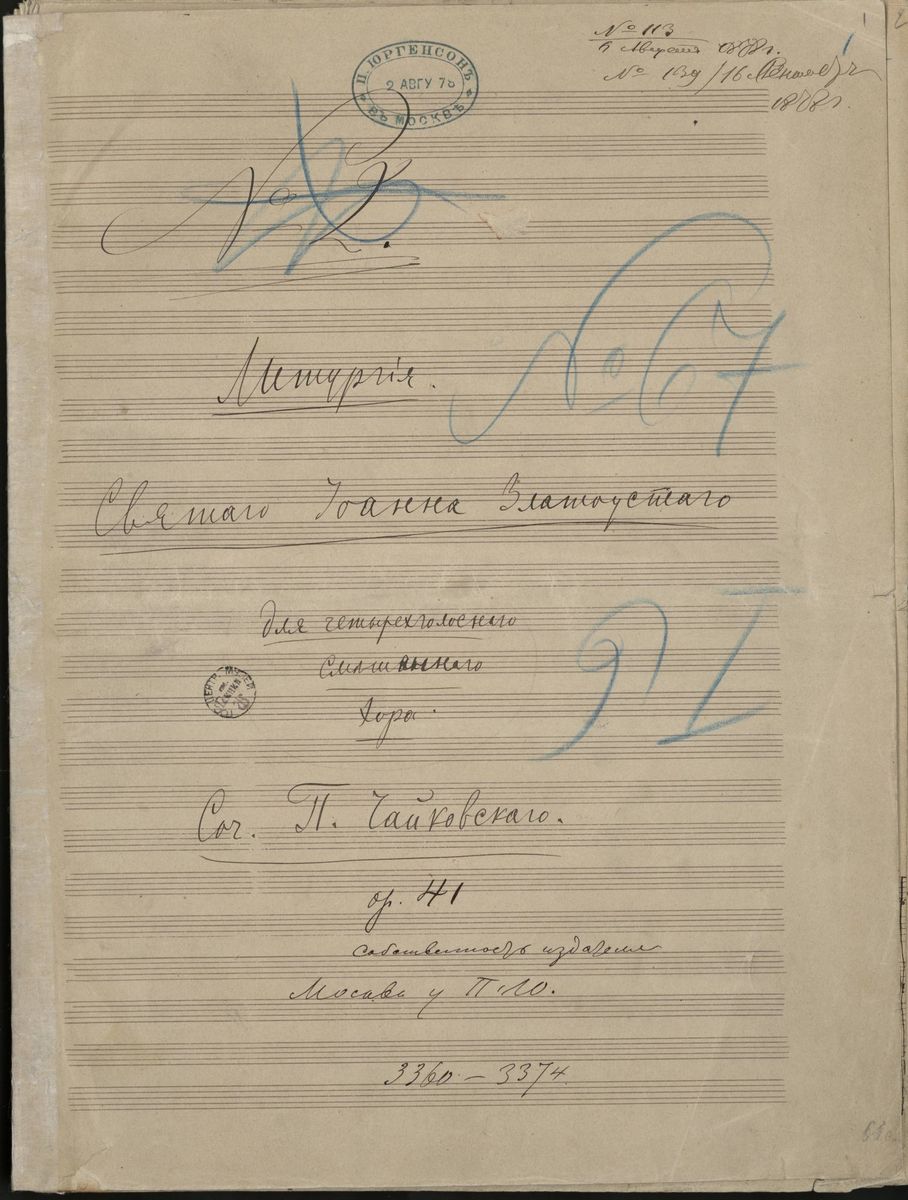 1
№ 113
6 Августа 1878 г.
№ 139/16
1878 г.
П. ЮРГЕНСОНЪ
2 АВГУ 78
ВЪ МОСКВѢ
№ 2.
№ 67
Литургія.
Святаго Іоанна Златоустаго
для четырехголоснаго
смѣшаннаго
Хора.
Соч. П. Чайковскаго.
op. 41
собственность издателя
Москва у П. Ю.
3360 – 3374